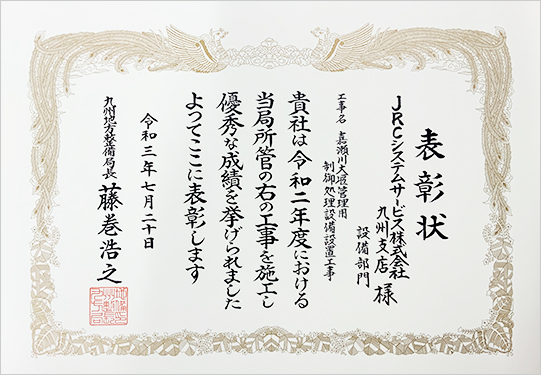 表彰状
JRCシステムサービス株式会社
九州支店 様
設備部門
工事名 嘉瀬川大堰管理用
制御処理設備設置工事
貴社は令和二年度における
当局所管の右の工事を施工し
優秀な成績を挙げられました
よってここに表彰します
令和三年七月二十日
九州地方整備局長 藤巻浩之